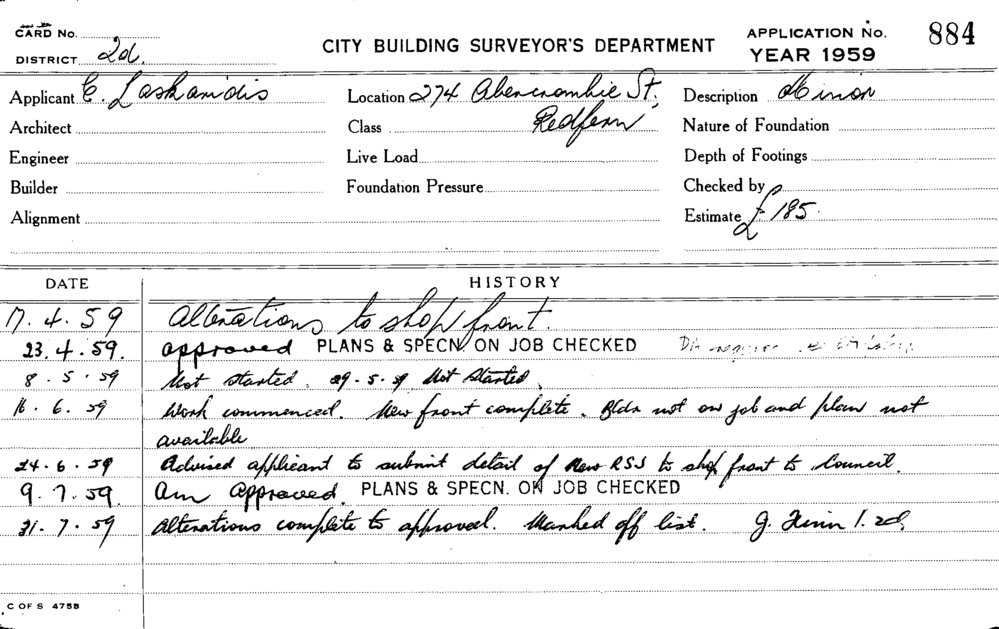 CARD No.
DISTRICT 2d.
CITY BUILDING SURVEYOR'S DEPARTMENT
APPLICATION No. 884
YEAR 1959
Applicant C. Laskaridis
Location 274 Abercrombie St,
Redfern
Description Minor
Architect
Class
Nature of Foundation
Engineer
Live Load
Depth of Footings
Builder
Foundation Pressure
Checked by
Alignment
Estimate £185.
DATE HISTORY
17.4.59 Alterations to shop front.
23.4.59. approved PLANS & SPECN. ON JOB CHECKED
8.5.59 Not started. 29.5.59 Not Started.
16.6.59 Work commenced. New front complete. Bldr not on job and plan not
available
24.6.59 Advised applicant to submit detail of new RSJ to shop front to Council.
9.7.59. Am approved. PLANS & SPECN. ON JOB CHECKED
31.7.59 Alterations complete to approval. Marked off list. J. 2d.
C OF S 475B